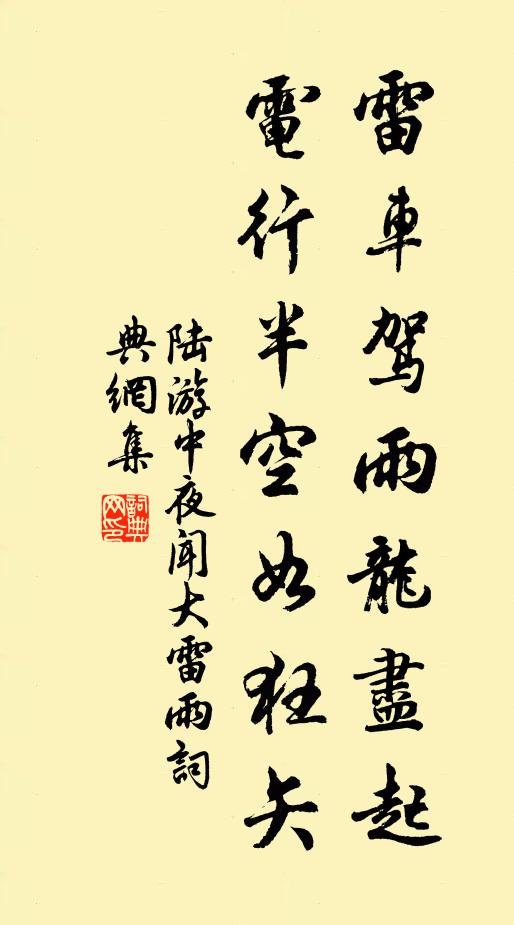 雷車駕雨龍盡起
電行半空如狂矢
陆游中夜闻大雷雨詞
典網集
詞典
网印